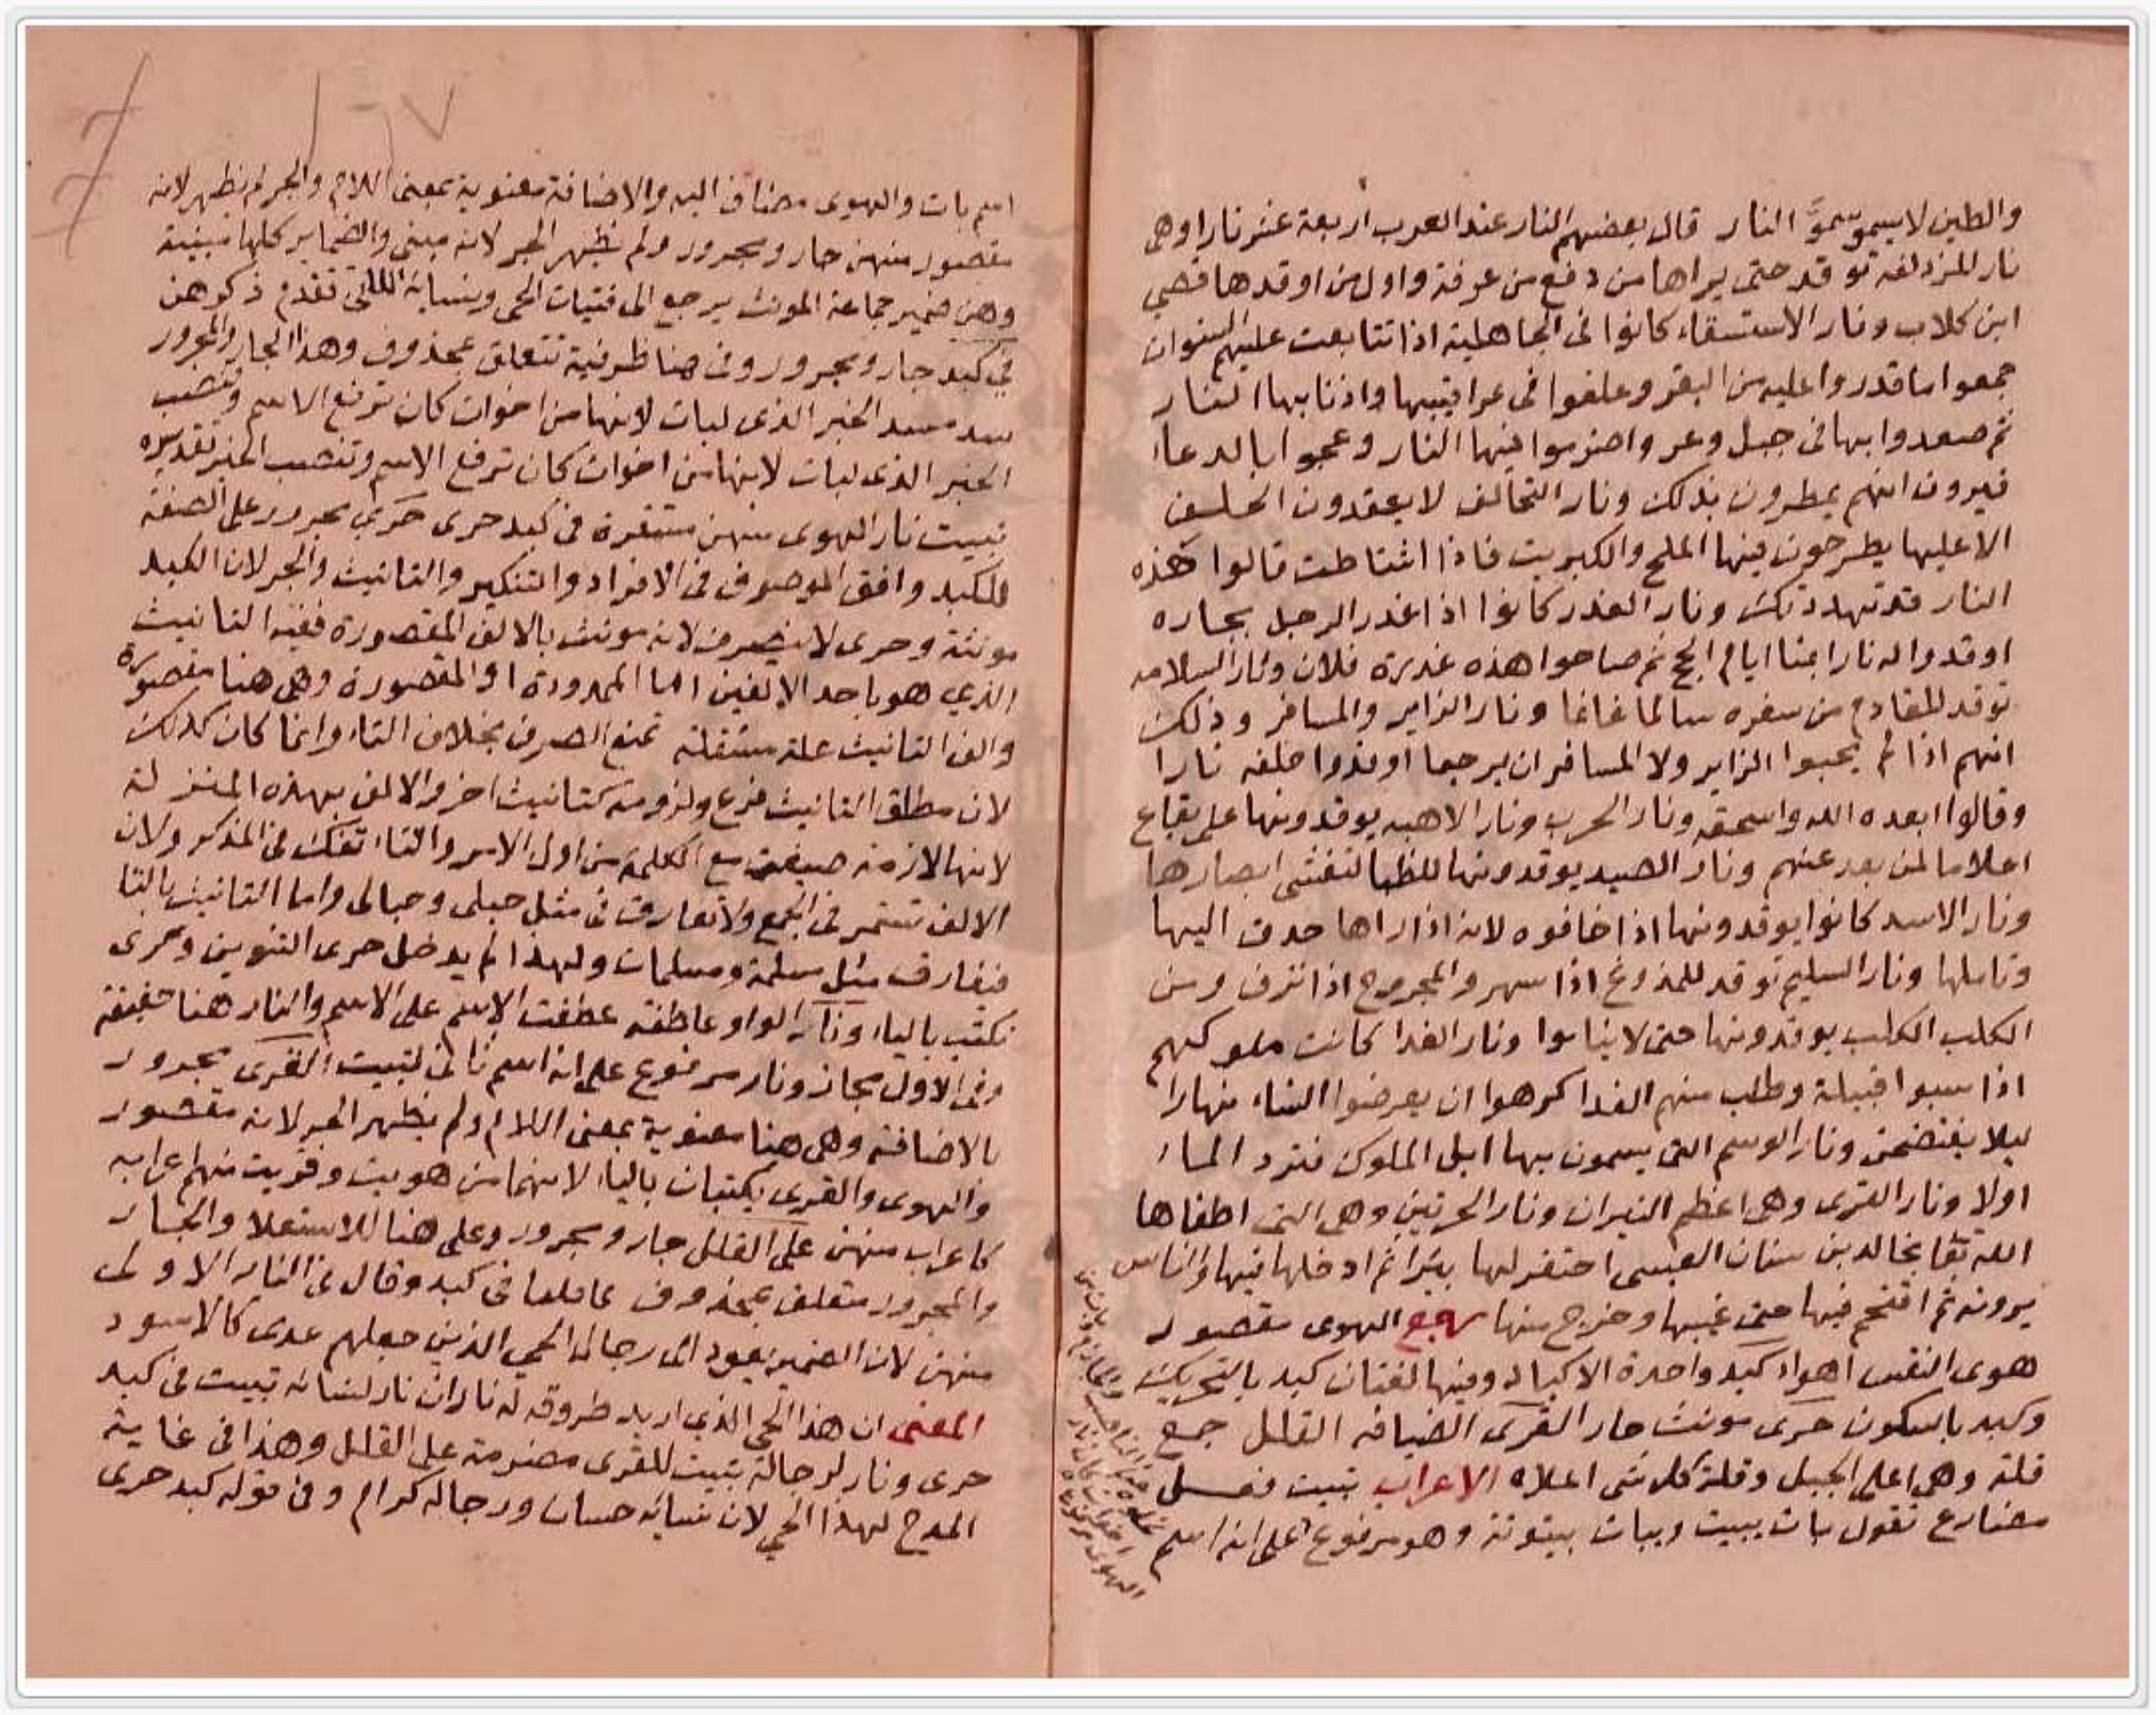 والطين لا يسمو سموَّ النار قال بعضهم النار عند العرب اربعة عشر نارا وهى
نار المزدلفه توقد حتى يراها من دفع من عرفة واول من اوقدها قصي
ابن كلاب ونار الاستسقاء كانوا فى الجاهلية اذا تتابعت عليهم السنوات
جمعوا ما قدروا عليه من البقر وعلقوا فى عراقيبها واذنابها
ثم صعدوا بها فى جبل وعر واضرموا فيها النار وعجوا بالدعاء
فيرون انهم يمطرون بذلك ونار التحالف لا يعقدون الحلف
الا عليها يطرحون فيها الملح والكبريت فاذا اشتاطت قالوا هذه
النار قد تهددتك ونار الغدر كانوا اذا غدر الرجل بجاره
اوقدوا له نارا بمنا ايام الحج ثم صاحوا هذه غدرة فلان ونار السلامه
توقد للقادم من سفره سالما غانما ونار الزاير والمسافر وذلك
انهم اذا لم يحبوا الزاير ولا المسافر ان يرجعا اوقدوا خلفه نارا
وقالوا ابعده الله واسحقه ونار الحرب ونار الاهبه يوقدونها على بقاع
اعلاما لمن بعد عنهم ونار الصيد يوقدونها للظبا لتغشى ابصارها
ونار الاسد كانوا يوقدونها اذا خافوه لانه اذا راها حدق اليها
وتاملها ونار السليم توقد للملدوغ اذا سهر والمجروح اذا نزف ومن
الكلب الكلب يوقدونها حتى لا يناموا ونار الفدا كانت ملوكهم
اذا سبوا قبيلة وطلب منهم الفدا كرهوا ان يعرضوا النساء نهارا
ليلا يفتضحن ونار الوسم التى يسمون بها ابل الملوك فترد الماء
اولا ونار القرى وهى اعظم النيران ونار الحرتين وهى التى اطفاها
الله تقا بخالد بن سنان العبسى احتفر لها بئرا ثم ادخلها فيها والناس
يرونه ثم اقتحم فيها حتى غيبها وخرج منها رجع الهوى مقصور
هوى النفس اهواء كبد واحدة الاكباد وفيها لغتان كبد بالتحريك
وكبد بالسكون حرى مونث حار القرى الضيافه القلل جمع
قلة وهى اعلى الجبل وقلة كل شى اعلاه الاعراب تبيت فعل
مضارع تقول بات يبيت ويبات بيتوتة وهو مرفوع على انه اسم
اسم بات والهوى مضاف اليه والاضافة معنوية بمعنى اللام والجر لم يظهر لانه
مقصور منهن جار ومجرور ولم يظهر الجر لانه مبنى والضماير كلها مبنية
وهن ضمير جماعة المونث يرجع الى فتيات الحى ونسايه اللاتى تقدم ذكرهن
فى كبد جار ومجرور وفى هنا ظرفية تتعلق بمحذوف وهذا الجار والمجرور
سد مسد الخبر الذى لبات لانها من اخوات كان ترفع الاسم وتنصب
الخبر الذى لبات لانها من اخوات كان ترفع الاسم وتنصب الخبر تقديره
تبيت نار الهوى منهن مستقرة فى كبد حرى حرى مجرور على الصفة
للكبد وافق الموصوف فى الافراد والتنكير والتانيث والجر لان الكبد
مونثة وحرى لا ينصرف لانه مونث بالالف المقصورة ففيه التانيث
الذي هو باحد الالفين اما الممدودة او المقصورة وهى هنا مقصورة
والف التانيث علة مستقلة تمنع الصرف بخلاف التاء وانما كان كذلك
لان مطلق التانيث فرع ولزومه كتانيث اخر والالف بهذه المنزلة
لانها لازمة صيغت مع الكلمة من اول الامر والتاء تنفك فى المذكر ولان
الالف تستمر فى الجمع ولا تفارق فى مثل حبلى وحبالى واما التانيث بالتا
فيفارق مثل مسلمة ومسلمات ولهذا لم يدخل حرى التنوين وحرى
تكتب بالياء ونار الواو عاطفة عطفت الاسم على الاسم والنار هنا حقيقة
وفى الاول مجاز ونار مرفوع على انه اسم ثانى لتبيت القرى مجرور
بالاضافة وهى هنا معنوية بمعنى اللام ولم يظهر الجر لانه مقصور
والهوى والقرى يكتبان بالياء لانهما من هويت وقريت منهم اعرابه
كاعراب منهن على القلل جار ومجرور وعلى هنا للاستعلا والجار
والمجرور متعلق بمحذوف كما قلنا فى كبد وقال فى النار الاولى
منهن لان الضمير يعود الى رجال الحي الذين جعلهم عدى كالاسود
المعنى ان هذا الحي الذي اريد طروقه له ناران نار لنسائه تبيت فى كبد
حرى ونار لرجاله تبيت للقرى مضرمة على القلل وهذا فى غاية
المدح لهذا الحي لان نسايه حسان ورجاله كرام وفى قوله كبد حرى